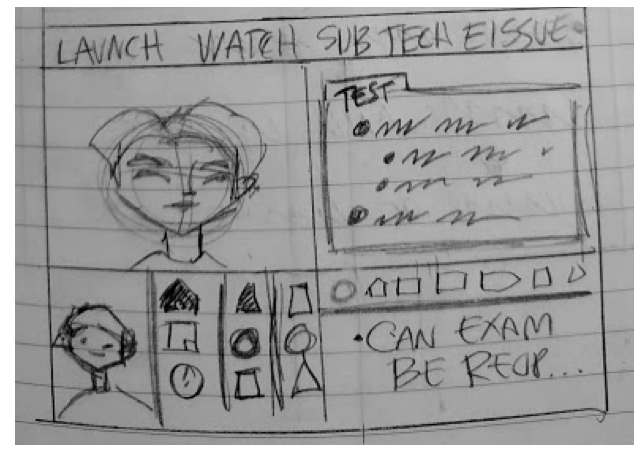 LAUNCH WATCH SUB TECH EISSUE
TEST
• CAN EXAM
BE RECIP...